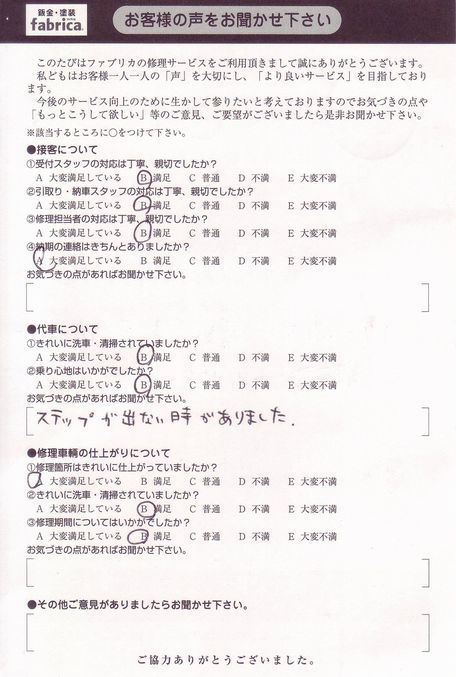 鈑金・塗装
fabrica.
お客様の声をお聞かせ下さい
このたびはファブリカの修理サービスをご利用頂きまして誠にありがとうございます。
私どもはお客様一人一人の「声」を大切にし、「より良いサービス」を目指しており
ます。
今後のサービス向上のために生かして参りたいと考えておりますのでお気づきの点や
「もっとこうして欲しい」等のご意見、ご要望がございましたら是非お聞かせ下さい。
※該当するところに○をつけて下さい。
●接客について
①受付スタッフの対応は丁寧、親切でしたか?
A 大変満足している B 満足 C 普通 D 不満 E 大変不満
②引取り・納車スタッフの対応は丁寧、親切でしたか?
A 大変満足している B 満足 C 普通 D 不満 E 大変不満
③修理担当者の対応は丁寧、親切でしたか?
A 大変満足している B 満足 C 普通 D 不満 E 大変不満
④納期の連絡はきちんとありましたか?
A 大変満足している B 満足 C 普通 D 不満 E 大変不満
お気づきの点があればお聞かせ下さい。
●代車について
①きれいに洗車・清掃されていましたか?
A 大変満足している B 満足 C 普通 D 不満 E 大変不満
②乗り心地はいかがでしたか?
A 大変満足している B 満足 C 普通 D 不満 E 大変不満
お気づきの点があればお聞かせ下さい。
ステップが出ない時がありました.
●修理車輌の仕上がりについて
①修理箇所はきれいに仕上がっていましたか?
A 大変満足している B 満足 C 普通 D 不満 E 大変不満
②きれいに洗車・清掃されていましたか?
A 大変満足している B 満足 C 普通 D 不満 E 大変不満
③修理期間についてはいかがでしたか?
A 大変満足している B 満足 C 普通 D 不満 E 大変不満
お気づきの点があればお聞かせ下さい。
●その他ご意見がありましたらお聞かせ下さい。
ご協力ありがとうございました。